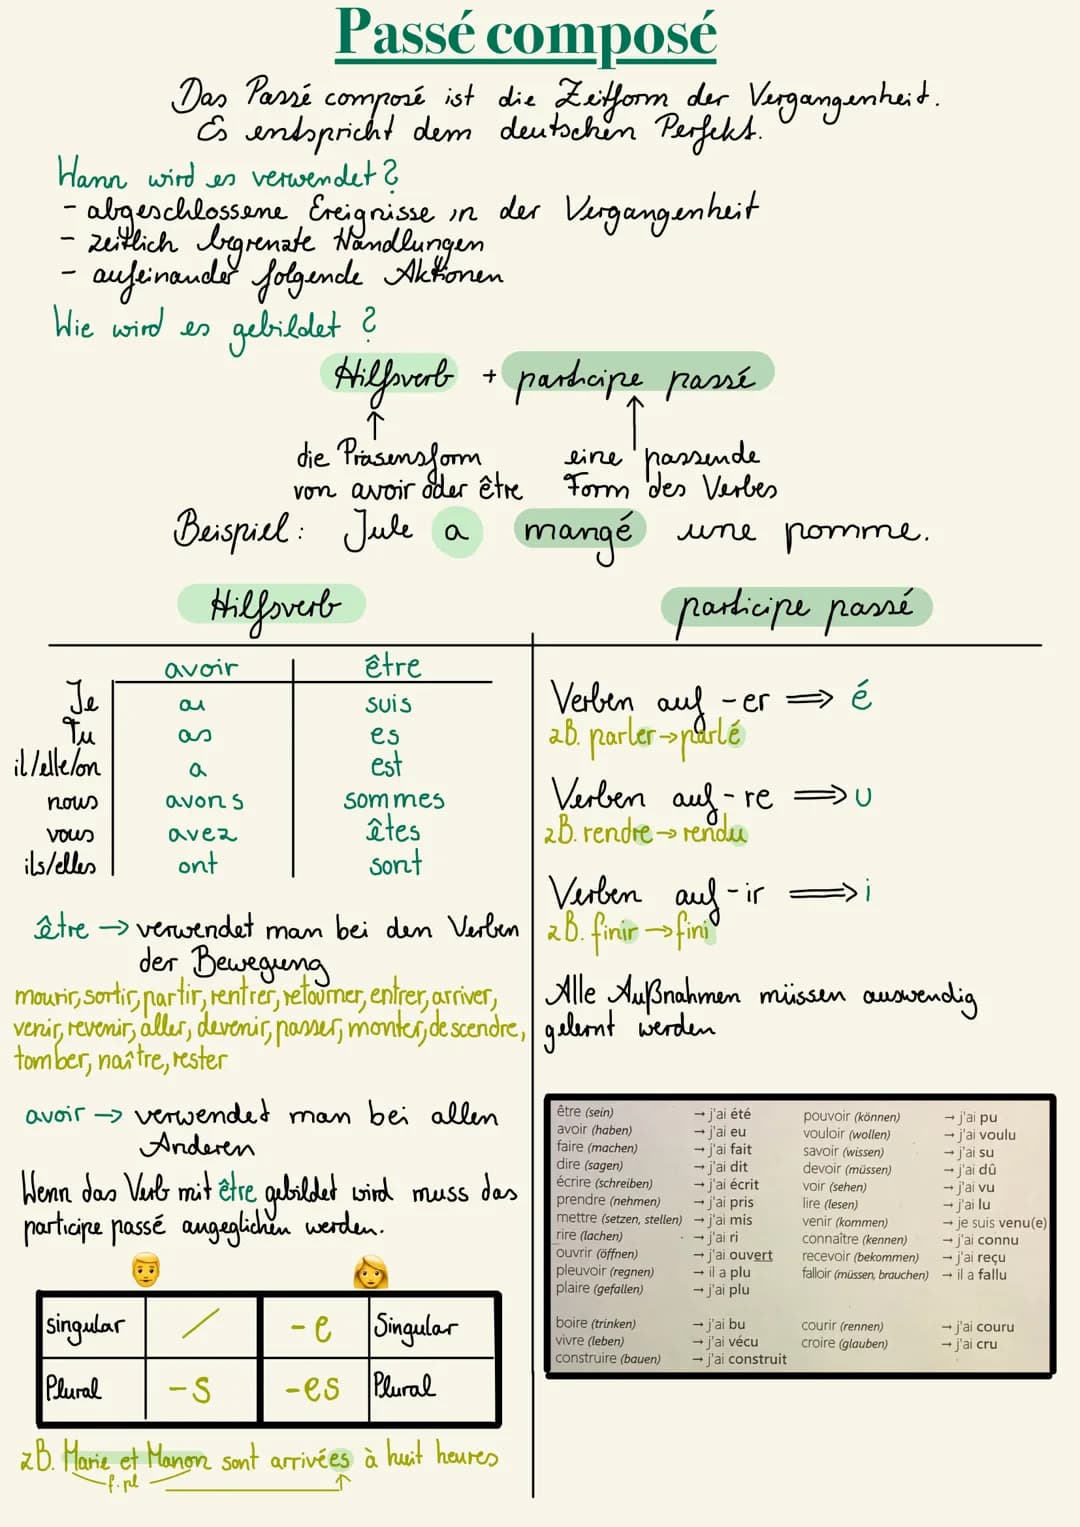 Passé composé
Das Passé composé ist die Zeitform der Vergangenheit.
Es entspricht dem deutschen Perfekt.
Wann wird es verwendet?
- abgeschlossene Ereignisse in der Vergangenheit
- zeitlich begrenzte Handlungen
- aufeinander folgende Aktionen
Wie wird es gebildet?
Hilfsverb + participe passé
die Präsensform
von avoir oder être
eine passende
Form des Verbes
Beispiel: Jule a mangé une pomme.
Hilfsverb
avoir être
Je ai suis
Tu as es
il/elle/on a est
nous avons sommes
vous avez êtes
ils/elles ont sont
être → verwendet man bei den Verben
der Bewegung
mourir, sortir, partir, rentrer, retourner, entrer, arriver,
venir, revenir, aller, devenir, passer, monter, descendre,
tomber, naître, rester
avoir → verwendet man bei allen
Anderen
Wenn das Verb mit être gebildet wird muss das
participe passé angeglichen werden.
Singular / -e Singular
Plural -s -es Plural
zB. Marie et Manon sont arrivées à huit heures
f. pl
participe passé
Verben auf -er ⟹ é
zB. parler → parlé
Verben auf -re ⟹ u
zB. rendre → rendu
Verben auf -ir ⟹ i
zB. finir → fini
Alle Außnahmen müssen auswendig
gelernt werden
être (sein) → j'ai été
avoir (haben) → j'ai eu
faire (machen) → j'ai fait
dire (sagen) → j'ai dit
écrire (schreiben) → j'ai écrit
prendre (nehmen) → j'ai pris
mettre (setzen, stellen) → j'ai mis
rire (lachen) → j'ai ri
ouvrir (öffnen) → j'ai ouvert
pleuvoir (regnen) → il a plu
plaire (gefallen) → j'ai plu
boire (trinken) → j'ai bu
vivre (leben) → j'ai vécu
construire (bauen) → j'ai construit
pouvoir (können) → j'ai pu
vouloir (wollen) → j'ai voulu
savoir (wissen) → j'ai su
devoir (müssen) → j'ai dû
voir (sehen) → j'ai vu
lire (lesen) → j'ai lu
venir (kommen) → je suis venu(e)
connaître (kennen) → j'ai connu
recevoir (bekommen) → j'ai reçu
falloir (müssen, brauchen) → il a fallu
courir (rennen) → j'ai couru
croire (glauben) → j'ai cru